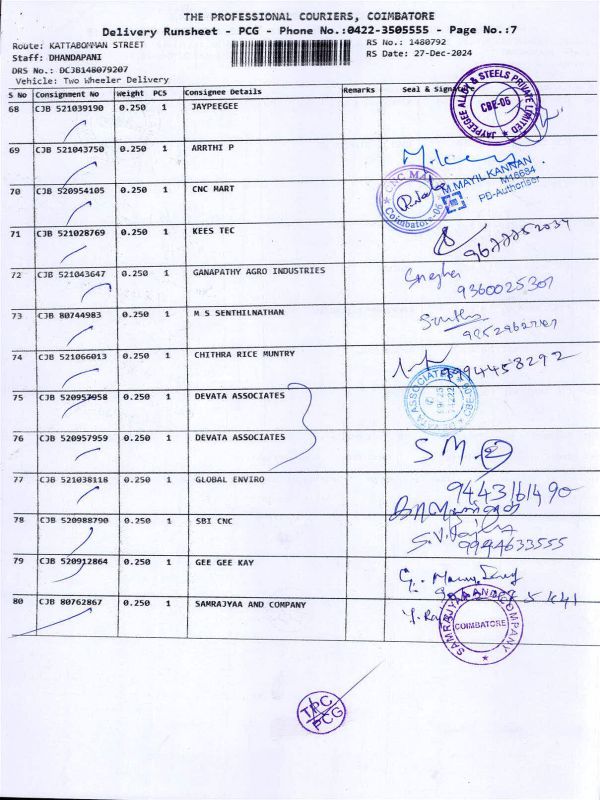 THE PROFESSIONAL COURIERS, COIMBATORE
Delivery Runsheet - PCG - Phone No.:0422-3505555 - Page No.:7
Route: KATTABOMMAN STREET RS No.: 1480792
Staff: DHANDAPANI RS Date: 27-Dec-2024
DRS No.: DCJB148079207
Vehicle: Two Wheeler Delivery
S No Consignment No Weight PCS Consignee Details Remarks Seal & Signature
68 CJB 521039190 0.250 1 JAYPEEGEE
JAYPEEGEE ALLOY & STEELS PRIVATE LIMITED CBE-06
69 CJB 521043750 0.250 1 ARRTHI P
M.MAYIL KANNAN
M16684
PD-Authoriser
70 CJB 520954105 0.250 1 CNC MART
CNC MART Coimbatore-06
71 CJB 521028769 0.250 1 KEES TEC
72 CJB 521043647 0.250 1 GANAPATHY AGRO INDUSTRIES
Snegha
9360025307
73 CJB 80744983 0.250 1 M S SENTHILNATHAN
74 CJB 521066013 0.250 1 CHITHRA RICE MUNTRY
9994458292
75 CJB 520957958 0.250 1 DEVATA ASSOCIATES
76 CJB 520957959 0.250 1 DEVATA ASSOCIATES
SM
77 CJB 521038118 0.250 1 GLOBAL ENVIRO
9443161490
78 CJB 520988790 0.250 1 SBI CNC
9994633555
79 CJB 520912864 0.250 1 GEE GEE KAY
80 CJB 80762867 0.250 1 SAMRAJYAA AND COMPANY
SAMRAJYAA AND COMPANY COIMBATORE
TPC
PCG